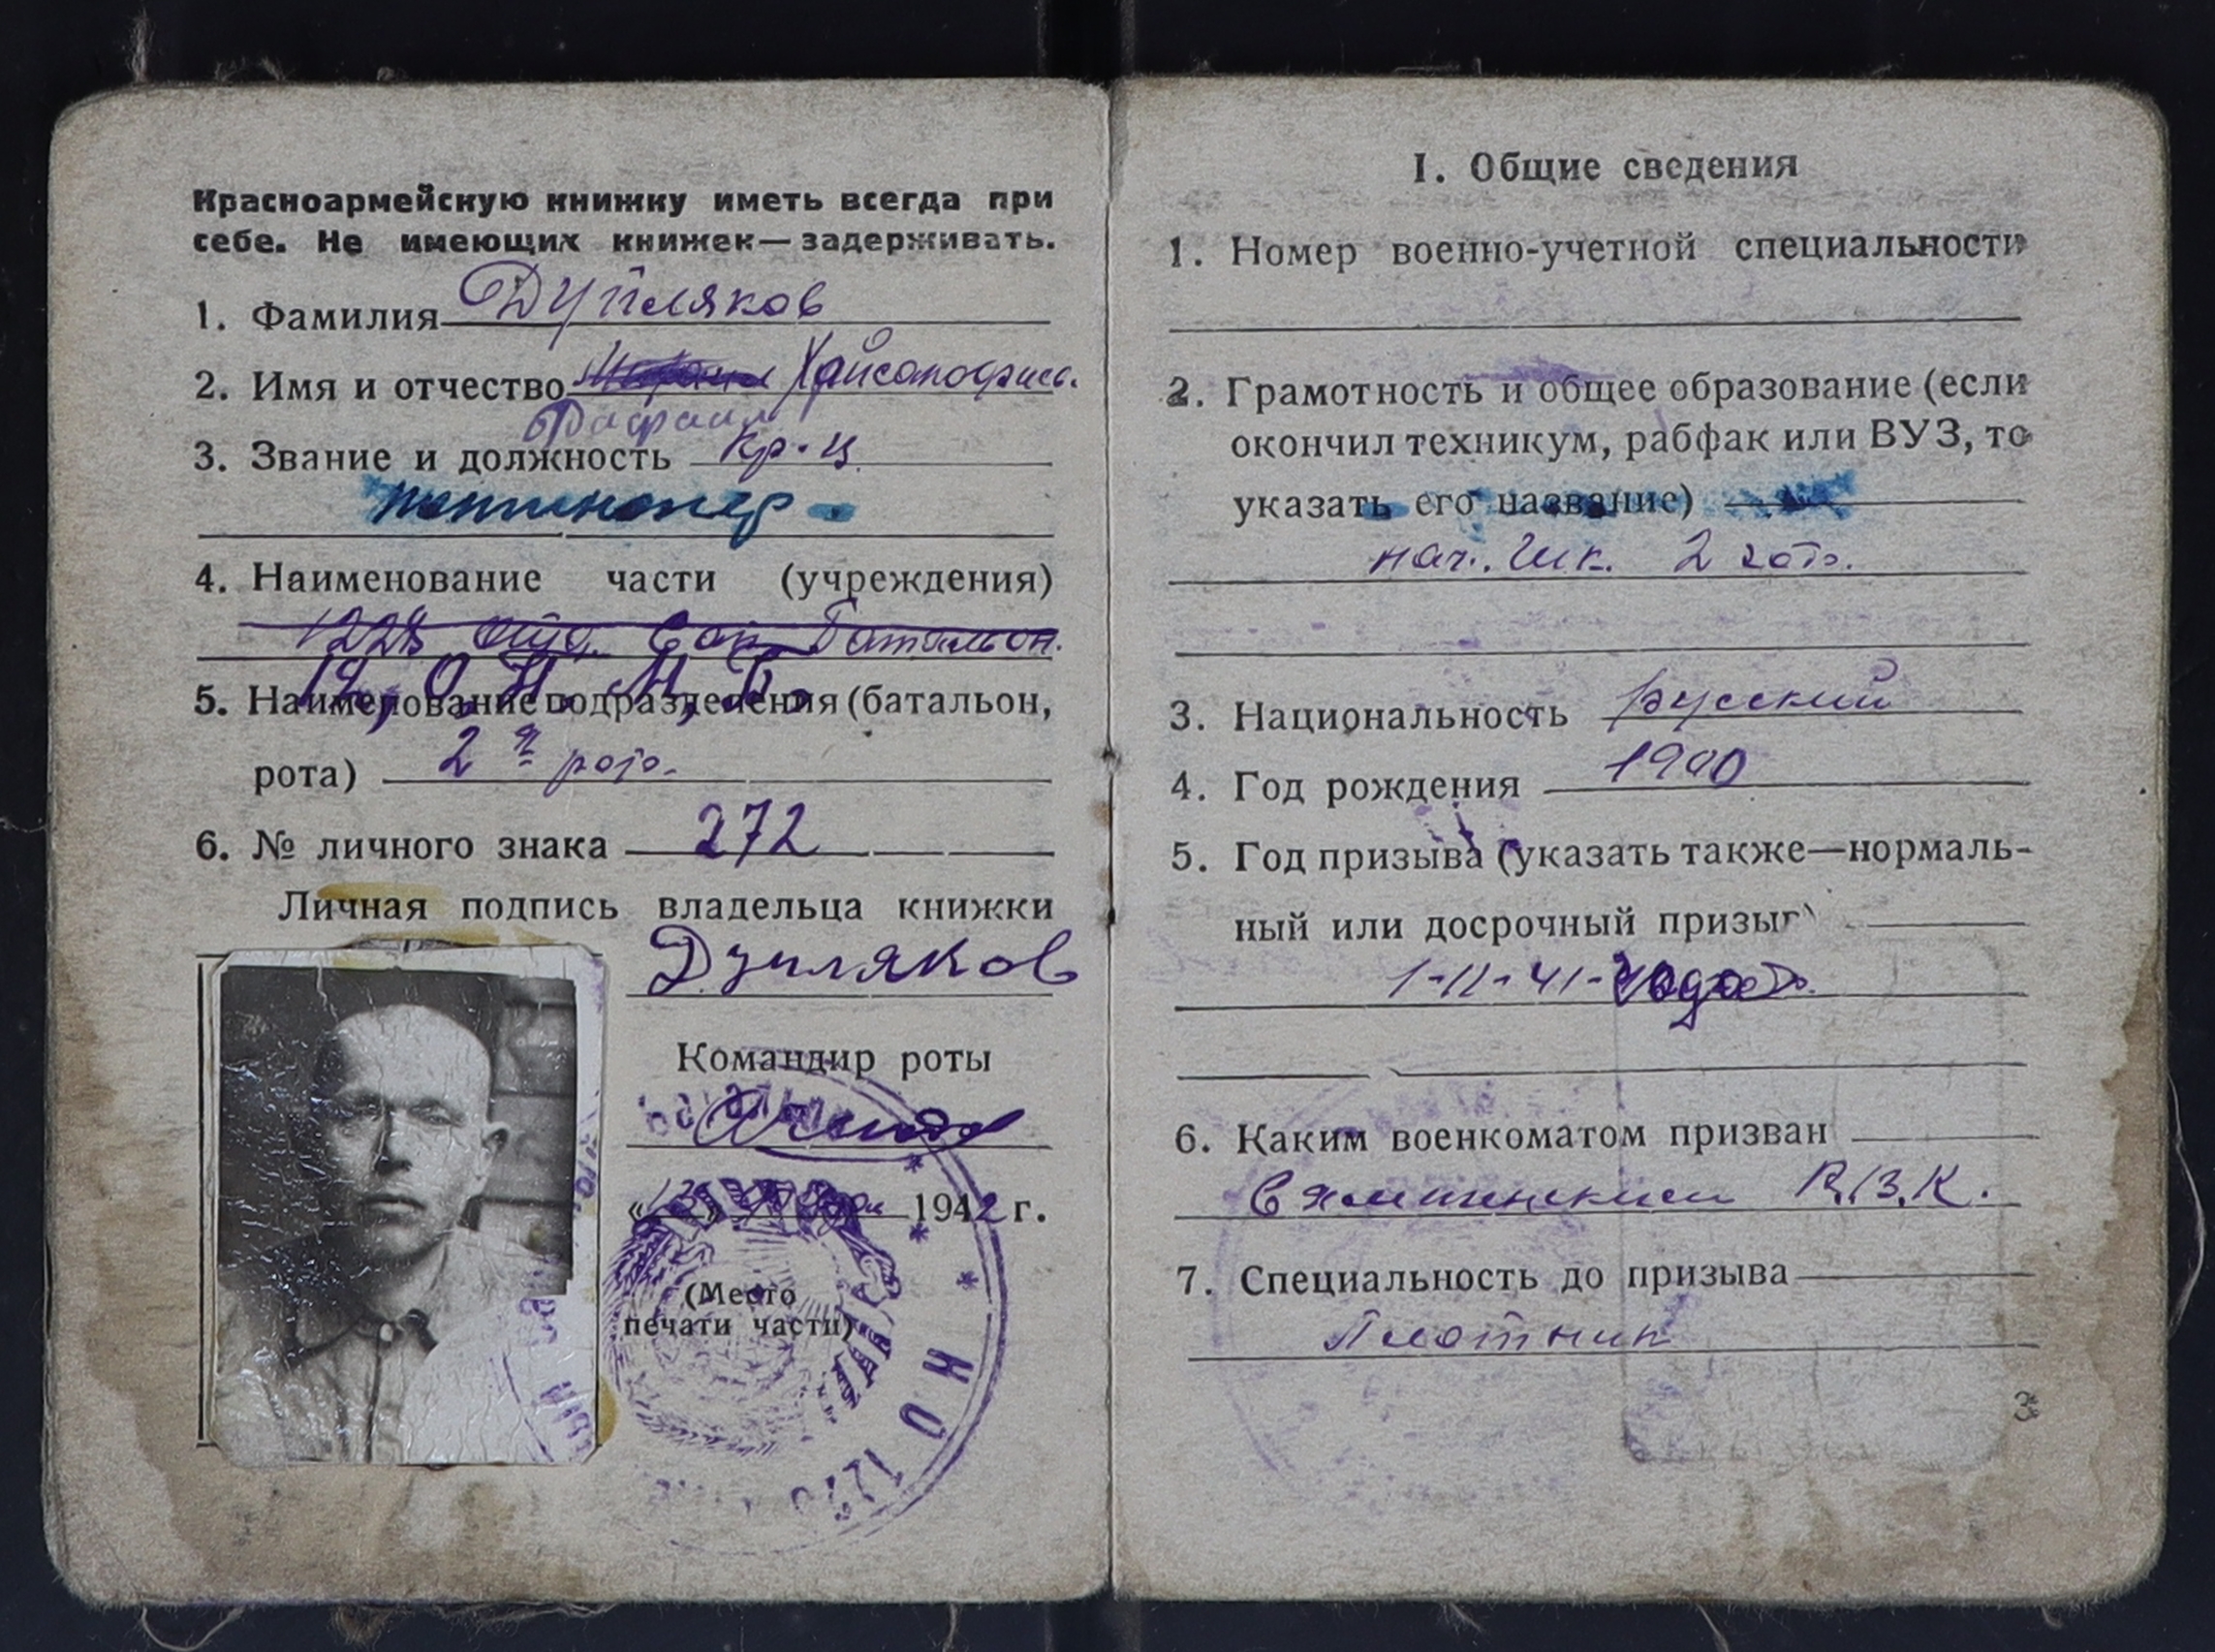 Красноармейскую книжку иметь всегда при
себе. Не имеющих книжек—задерживать.
1. Фамилия Дупляков
2. Имя и отчество
3. Звание и должность Кр-ц
4. Наименование части (учреждения)
1228 отд. Сап. Батальон.
12, О. И. М. Б.
5. Наименование подразделения (батальон,
рота) 2я рота.
6. № личного знака 272
Личная подпись владельца книжки
Дупляков
Командир роты
1942 г.
(Место
печати части)
I. Общие сведения
1. Номер военно-учетной специальности
2. Грамотность и общее образование (если
окончил техникум, рабфак или ВУЗ, то
указать его название)
нач. шк. 2
3. Национальность русский
4. Год рождения 1900
5. Год призыва (указать также—нормаль-
ный или досрочный призыв)
6. Каким военкоматом призван
Сямженский Р.В.К.
7. Специальность до призыва
Плотник
3